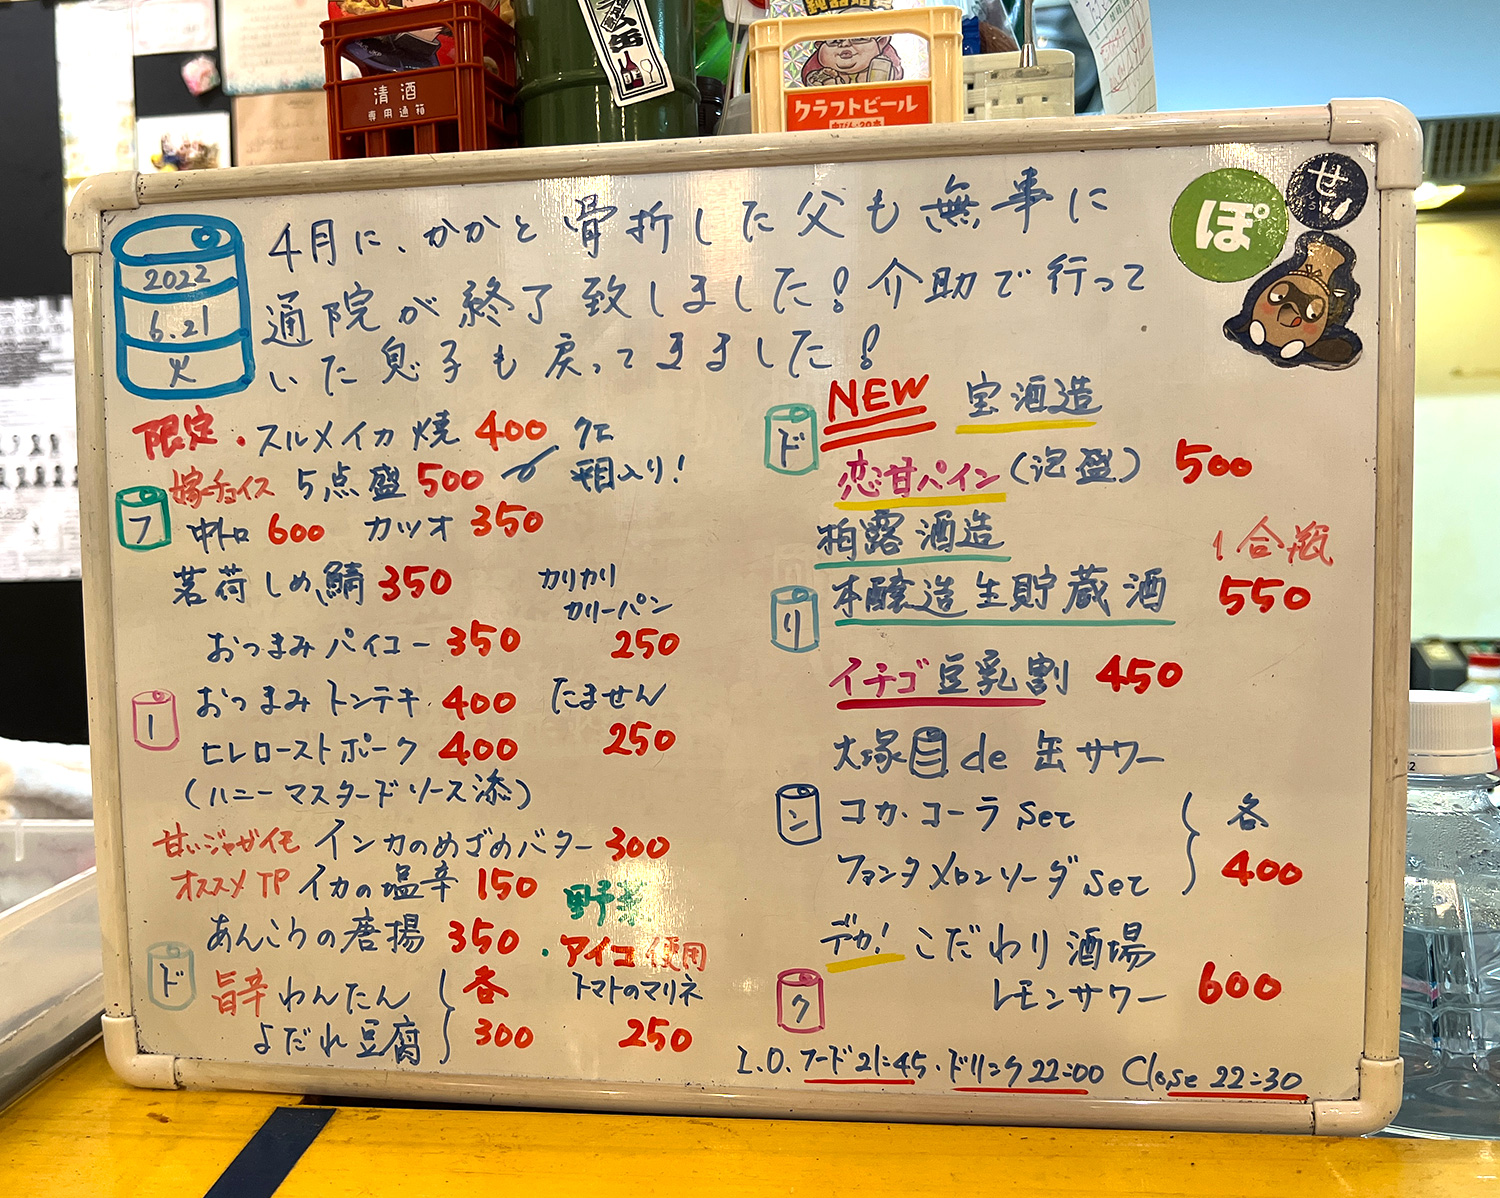 清酒
専用通箱
缶
クラフトビール
せ
ぽ
2022
6.21
火
4月に、かかと骨折した父も無事に
通院が終了致しました!介助で行って
いた息子も戻ってきました!
限定・スルメイカ焼 400
嫁チョイス 5点盛 500
クエ
平目入り!
フ
中トロ 600 カツオ 350
茗荷しめ鯖 350
カリカリ
カリーパン
250
おつまみパイコー 350
ー
おつまみトンテキ 400
たません
250
ヒレローストポーク 400
(ハニーマスタードソース添)
甘いジャガイモ インカのめざめバター 300
オススメTP イカの塩辛 150
あんこうの唐揚 350
野菜
・アイコ使用
トマトのマリネ
250
ド
旨辛 わんたん
よだれ豆腐
各
300
ド
NEW 宝酒造
恋甘パイン(泡盛) 500
柏露酒造
1合瓶
リ
本醸造生貯蔵酒 550
イチゴ豆乳割 450
大塚 de 缶サワー
ン
コカ・コーラ set
ファンタメロンソーダ set
各
400
デカ! こだわり酒場
レモンサワー 600
ク
L.O. フード21:45・ドリンク22:00 Close 22:30